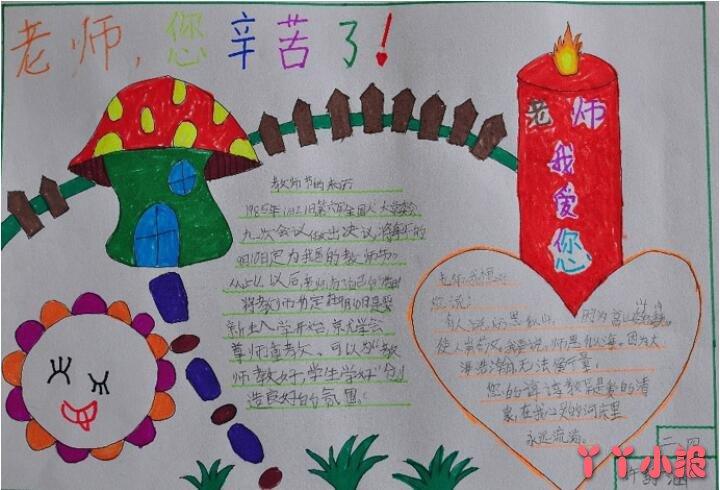 老师，您辛苦了！
老师
我
爱
您
教师节的来历
1985年1月21日第六届全国人大常委会
九次会议做出决议，将每年的
9月10日定为我国的教师节。
从此以后，老师有了自己的
将教师节定在9月10日是
新生入学开始
尊师重教 可以为“教
师教好，学生学好”创
造良好的氛围。
老师，我想
您说：
有人说，师恩如山，因为高山
使人崇 我说，师恩似海，因为大
海浩瀚，无法 量。
您的谆谆教导是爱的清
泉，在我心 的河床里
永远流淌。
二、四
丫丫小报